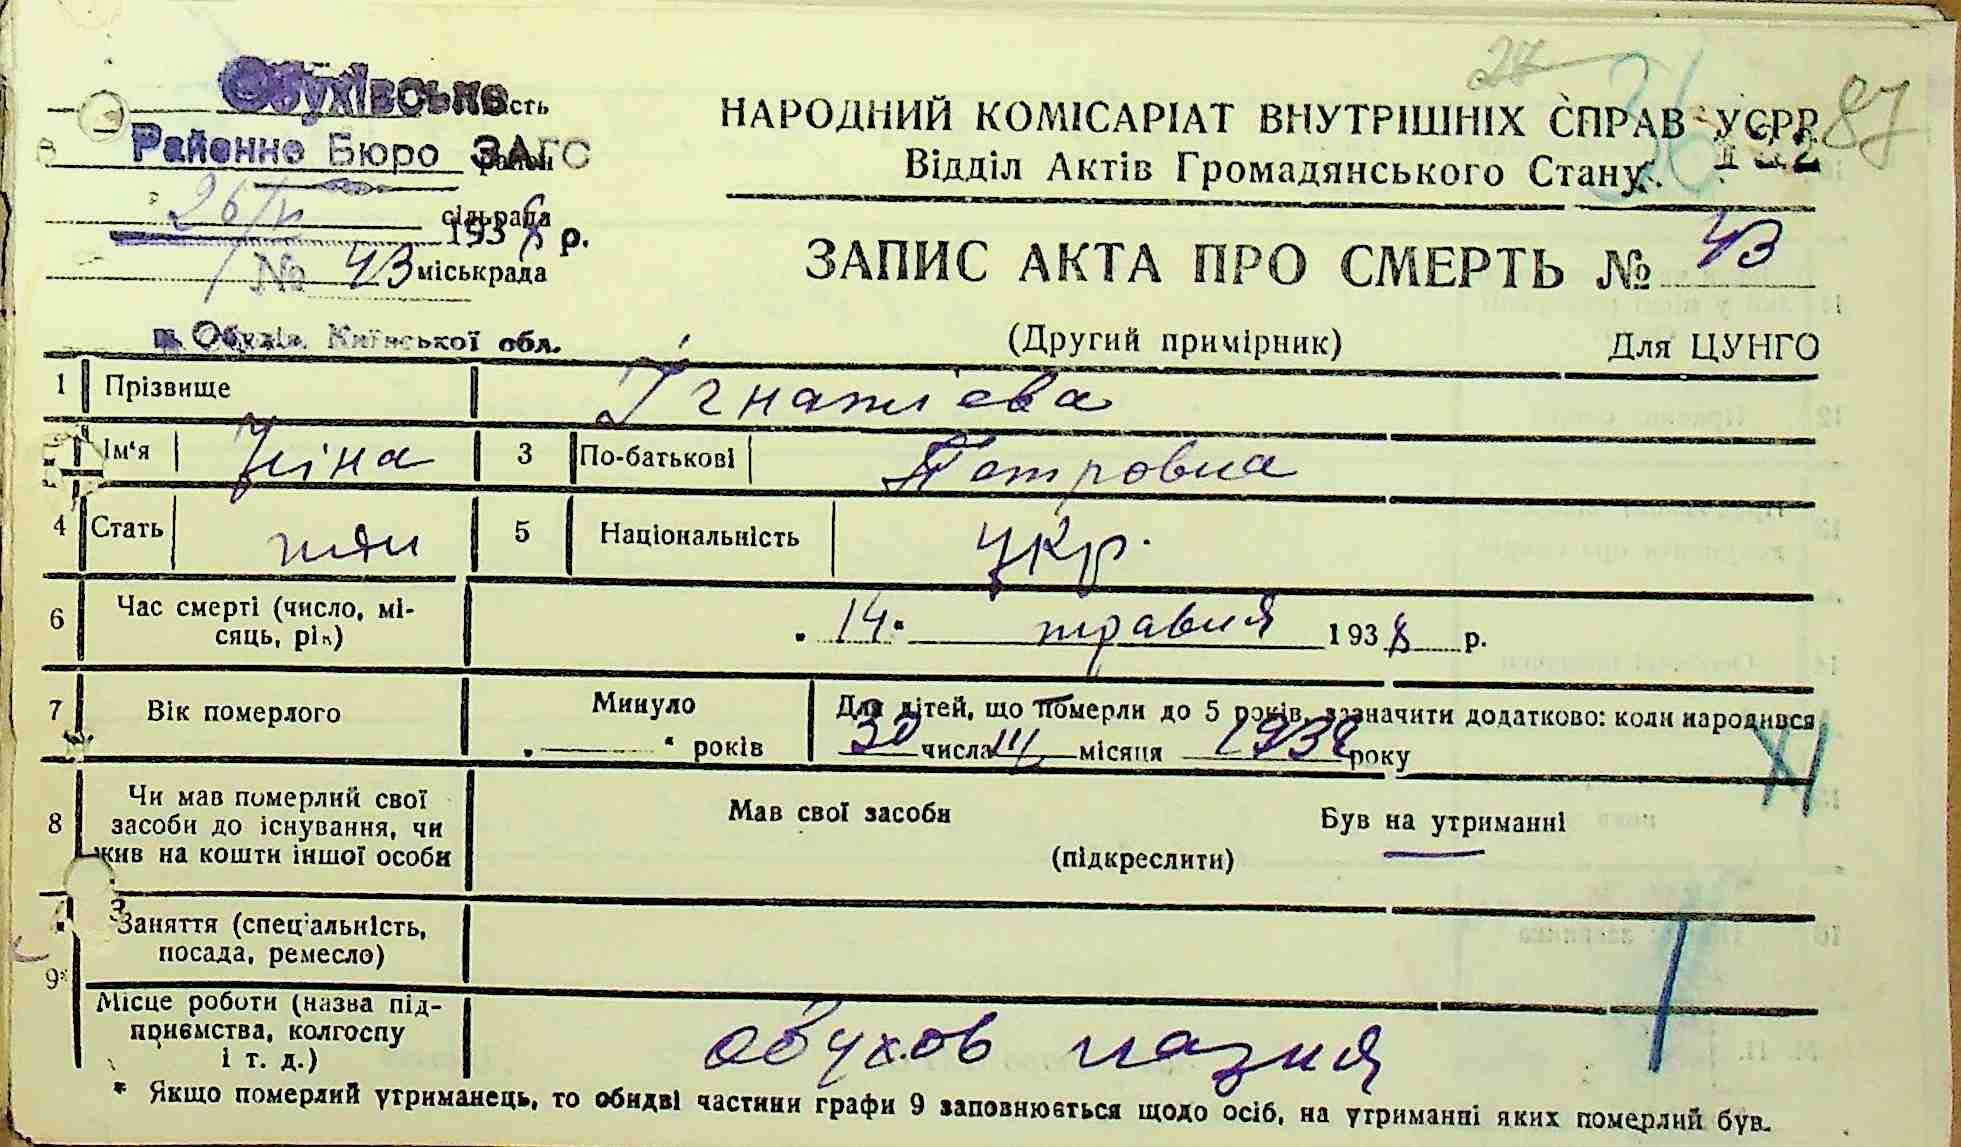 27
36
87
НАРОДНИЙ КОМІСАРІАТ ВНУТРІШНІХ СПРАВ УСРР
Відділ Актів Громадянського Стану
Обухівське
Районне Бюро ЗАГС
сільрада
1938 р.
№ 43 міськрада
м. Обухів, Київської обл.
ЗАПИС АКТА ПРО СМЕРТЬ № 43
(Другий примірник) Для ЦУНГО
1 Прізвище Ігнатієва
Ім'я Ніна 3 По-батькові Петровна
4 Стать 5 Національність укр.
6 Час смерті (число, мі-
сяць, рік) 14 травня 1938 р.
7 Вік померлого Минуло років
Для дітей, що померли до 5 років, зазначити додатково: коли народився
30 числа III місяця 1938 року
XI
8 Чи мав померлий свої
засоби до існування, чи
жив на кошти іншої особи
Мав свої засоби Був на утриманні
(підкреслити)
9* Заняття (спеціальність,
посада, ремесло)
Місце роботи (назва під-
приємства, колгоспу
і т. д.) Обухов
* Якщо померлий утриманець, то обидві частини графи 9 заповнюється щодо осіб, на утриманні яких померлий був.